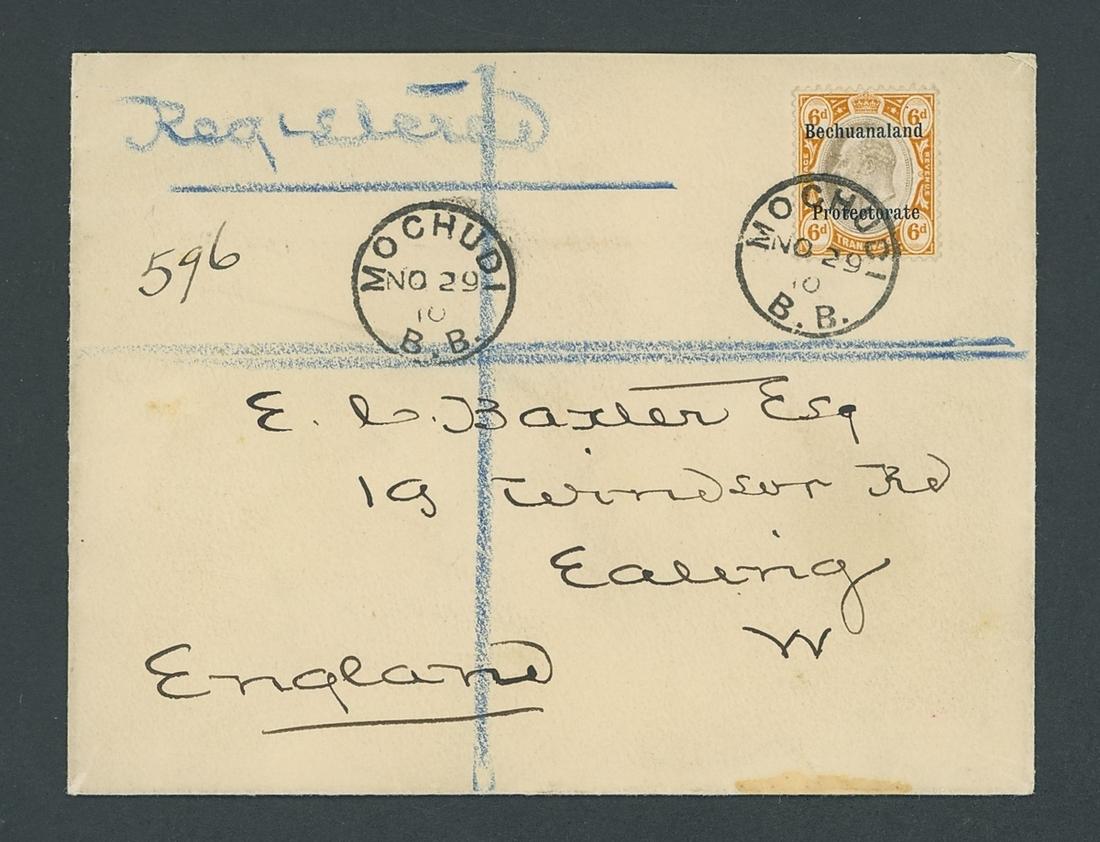 Registered
6d 6d
Bechuanaland
Protectorate
REVENUE
6d 6d
596
MOCHUDI
NO 29
10
B.B.
MOCHUDI
NO 29
10
B.B.
E. C. Baxter Esq
19 Windsor Rd
Ealing
W
England